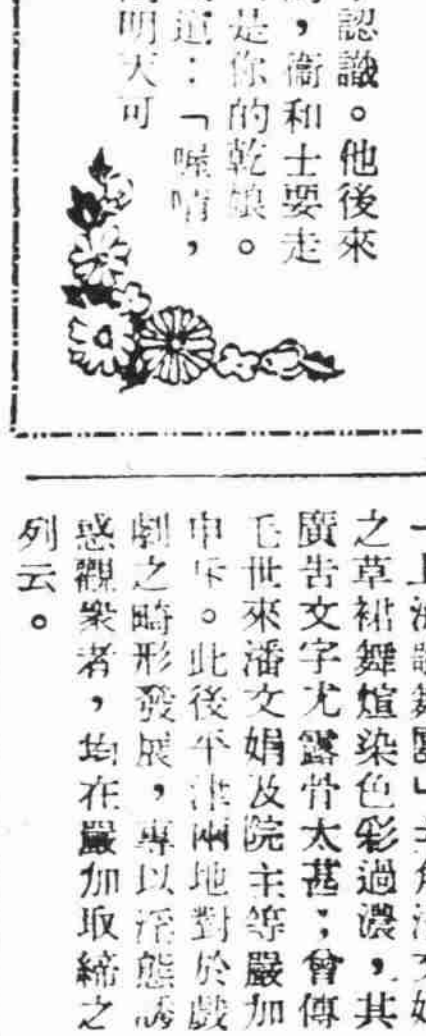 認識。他後來
，衞和士要走
是你的乾娘。
道：「喔唷，
明天可
之草裙舞煊染色彩過濃，其
廣告文字尤露骨太甚；會傳
毛世來潘文娟及院主等嚴加
申斥。此後平津兩地對於戲
劇之畸形發展，專以淫態誘
惑觀衆者，均在嚴加取締之
列云。